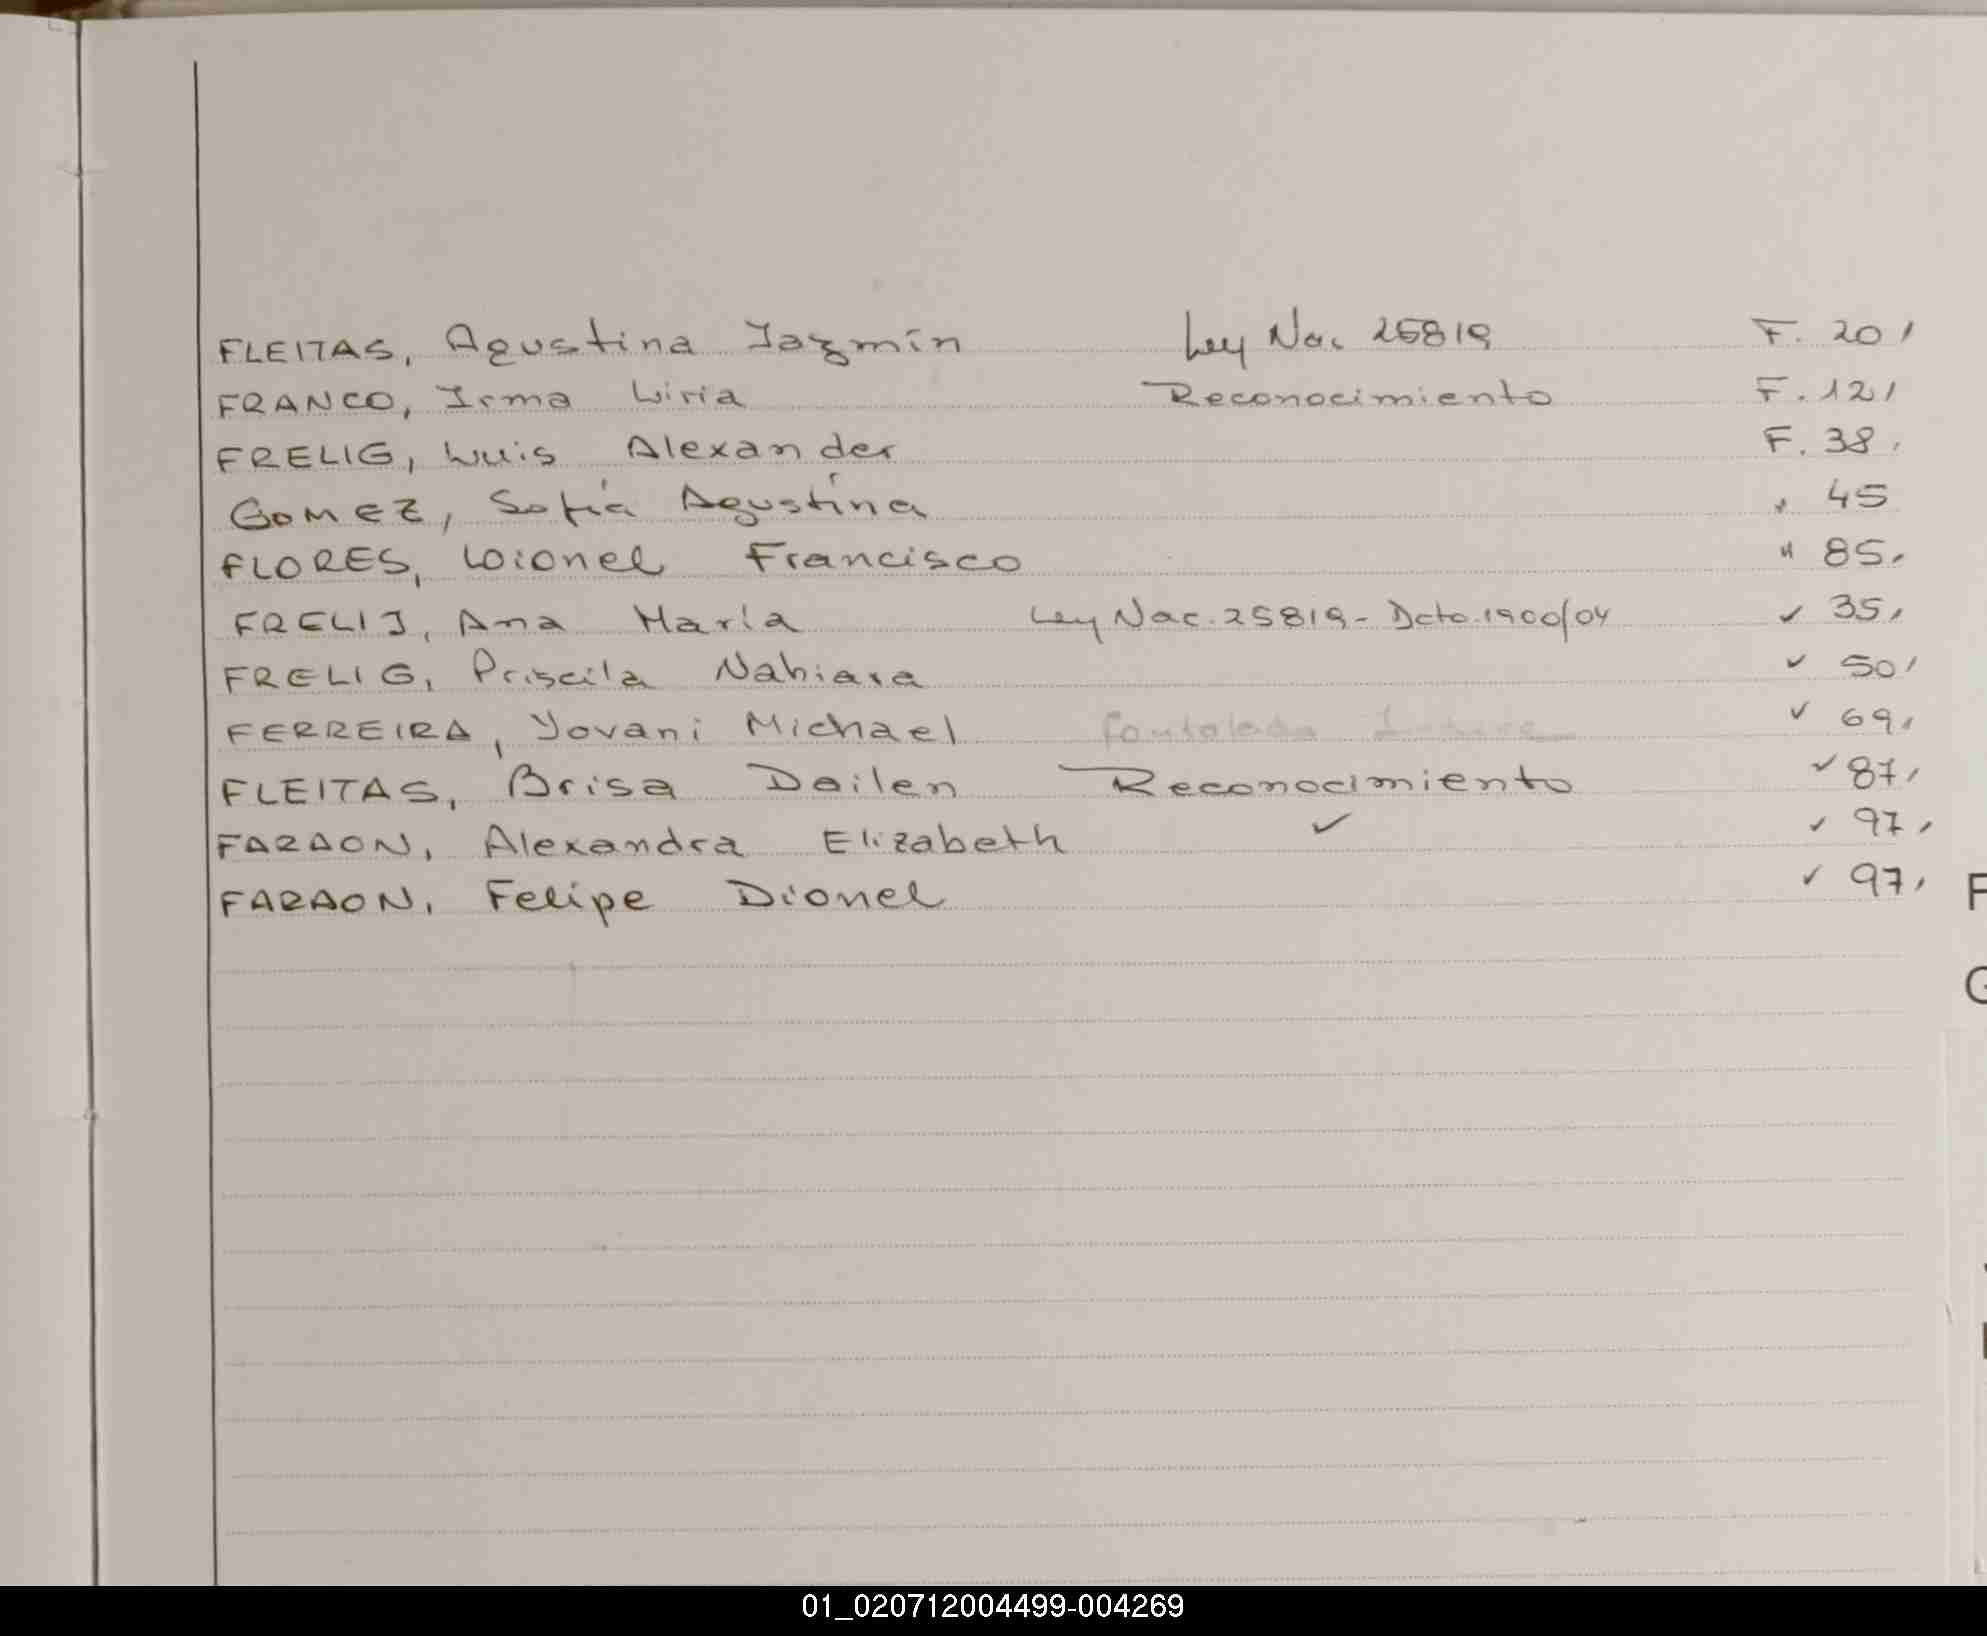 FLEITAS, Agustina Jazmín Ley Nac 25819 F. 20,
FRANCO, Irma Liria Reconocimiento F. 12,
FRELIG, Luis Alexander F. 38,
GOMEZ, Sofía Agustina " 45
FLORES, Lionel Francisco " 85,
FRELIJ, Ana María Ley Nac. 25819 - Dcto. 1900/04 ✓ 35,
FRELIG, Priscila Nahiara ✓ 50,
FERREIRA, Yovani Michael ✓ 69,
FLEITAS, Brisa Dailen Reconocimiento ✓ 87,
FARAON, Alexandra Elizabeth ✓ ✓ 97,
FARAON, Felipe Dionel ✓ 97,
F
G
01_020712004499-004269